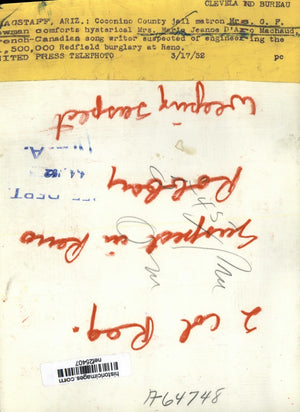 CLEVELAND BUREAU
LAGSTAFF, ARIZ.: Coconino County jail matron Mrs. G. F.
ewman comforts hysterical Mrs. Marie Jeanne D'Arc Machaud,
rench-Canadian song writer suspected of engineering the
1,500,000 Redfield burglary at Reno.
NITED PRESS TELEPHOTO 3/17/52 pc
Weeping suspect
Robbery
Suspect in Reno
2 col Req.
historicimages.com
nef25407
A64748